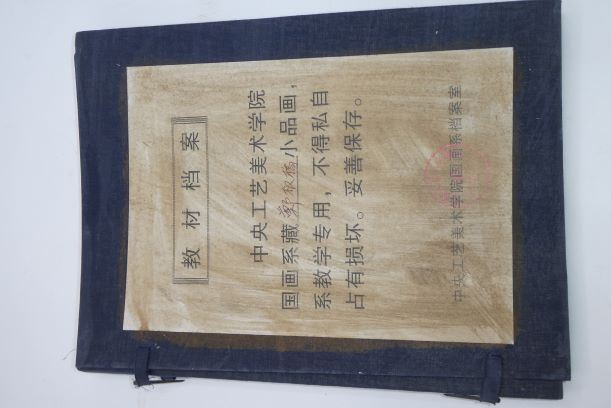 教材档案
中央工艺美术学院
国画系藏郑叔方小品画，
系教学专用，不得私自
占有损坏。妥善保存。
中央工艺美术学院国画系档案室